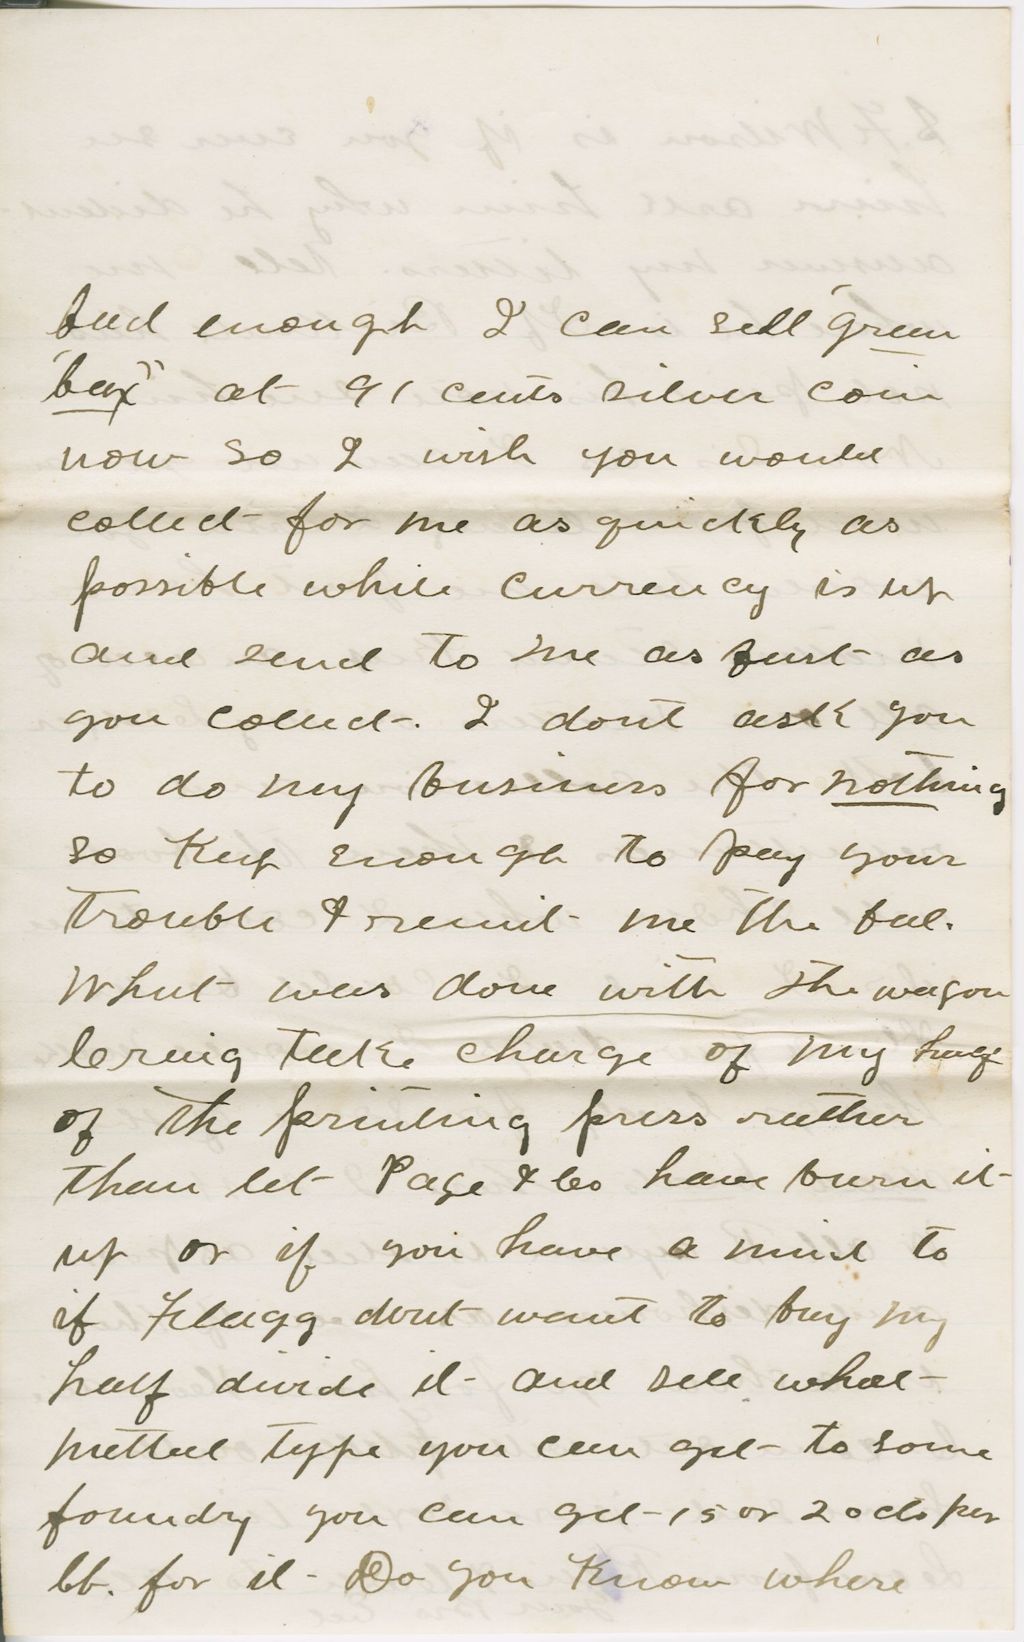 bad enough I can sell "green
bax" at 91 cents silver coin
now so I wish you would
collect for me as quickly as
possible while currency is up
and send to me as fast as
you collect. I dont ask you
to do my business for nothing
so Keep enough to pay your
trouble & remit me the bal.
What was done with the wagon
take charge of my half
of the printing press rather
than let Page & Co have burn it
up or if you have a mind to
if Flagg dont want to buy my
half divide it and sell what
mettal type you can get to some
foundry you can get 15 or 20 cts per
lb. for it - Do you Know where